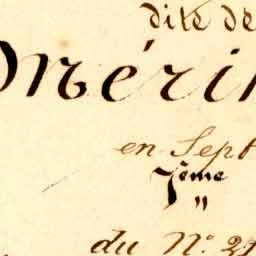 dite de
Méri
en Sept
7ème
"
du N.º 2